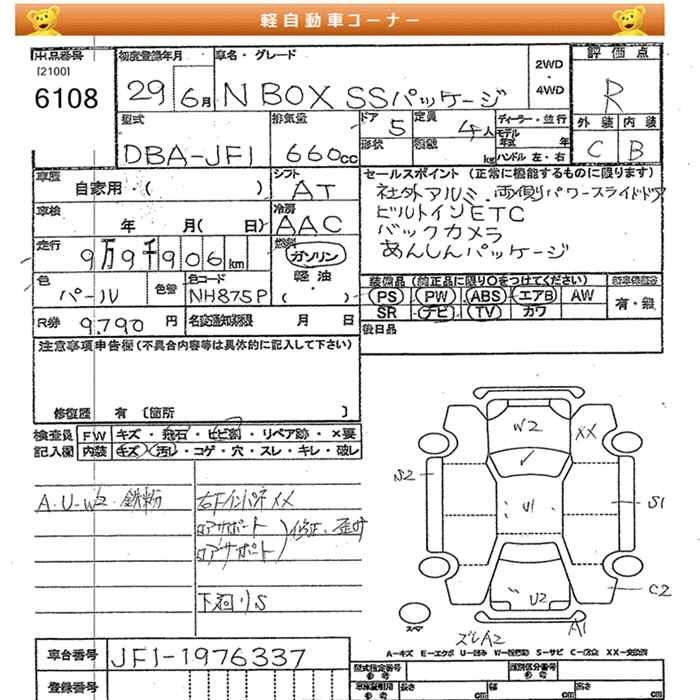 軽自動車コーナー
出品番号
[2100]
6108
初度登録年月
29 6月
車名・グレード
N BOX SSパッケージ
2WD
・
4WD
評価点
R
外装 内装
C B
型式
DBA-JF1
排気量
660cc
ドア 5
定員 4人
形状
積載 kg
ディーラー・並行
モデル年式 年
ハンドル 左・右
車歴
自家用・( )
シフト
AT
車検
年 月( 日)
冷房
AAC
走行
9万9千906km
燃料
ガソリン
・
軽油
・
( )
セールスポイント (正常に機能するものに限ります)
社外アルミ. 両側パワースライドドア
ビルトインETC
バックカメラ
あんしんパッケージ
色
パール
色替
色コード
NH875P
装備品 (純正品に限り○をつけてください)
PS PW ABS エアB AW
SR ナビ TV カワ
新車保証書
有・無
R券
9,790 円
名変通知期限 月 日
後日品
注意事項申告欄 (不具合内容等は具体的に記入して下さい)
修復歴 有 [箇所 ]
検査員
記入欄
FW キズ・飛石・ヒビ割・リペア跡・×要
内装 キズ・汚レ・コゲ・穴・スレ・キレ・破レ
A.U-W2 鉄粉
右Fインパネ XX
ロアサポート
ロアサポート
修正、歪み
下回りS
W2
XX
U1
S1
C2
U2
A1
ズレA2
スペア
A-キズ E-エクボ U-凹み W-補修跡 S-サビ C-腐食 XX-交換済
車台番号
JF1-1976337
登録番号
型式指定番号
参考
類別区分番号
参考
車庫証明用
参考
長さ cm
幅 cm
高さ cm